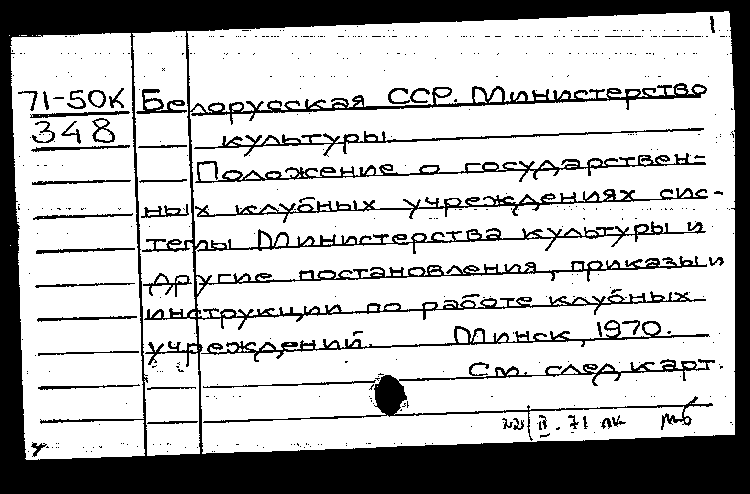 1
71-50К Белорусская ССР. Министерство
348 культуры.
Положение о государствен-
ных клубных учреждениях сис-
темы Министерства культуры и
другие постановления, приказы и
инструкции по работе клубных
учреждений. Минск, 1970.
См. след. карт.
II. 71